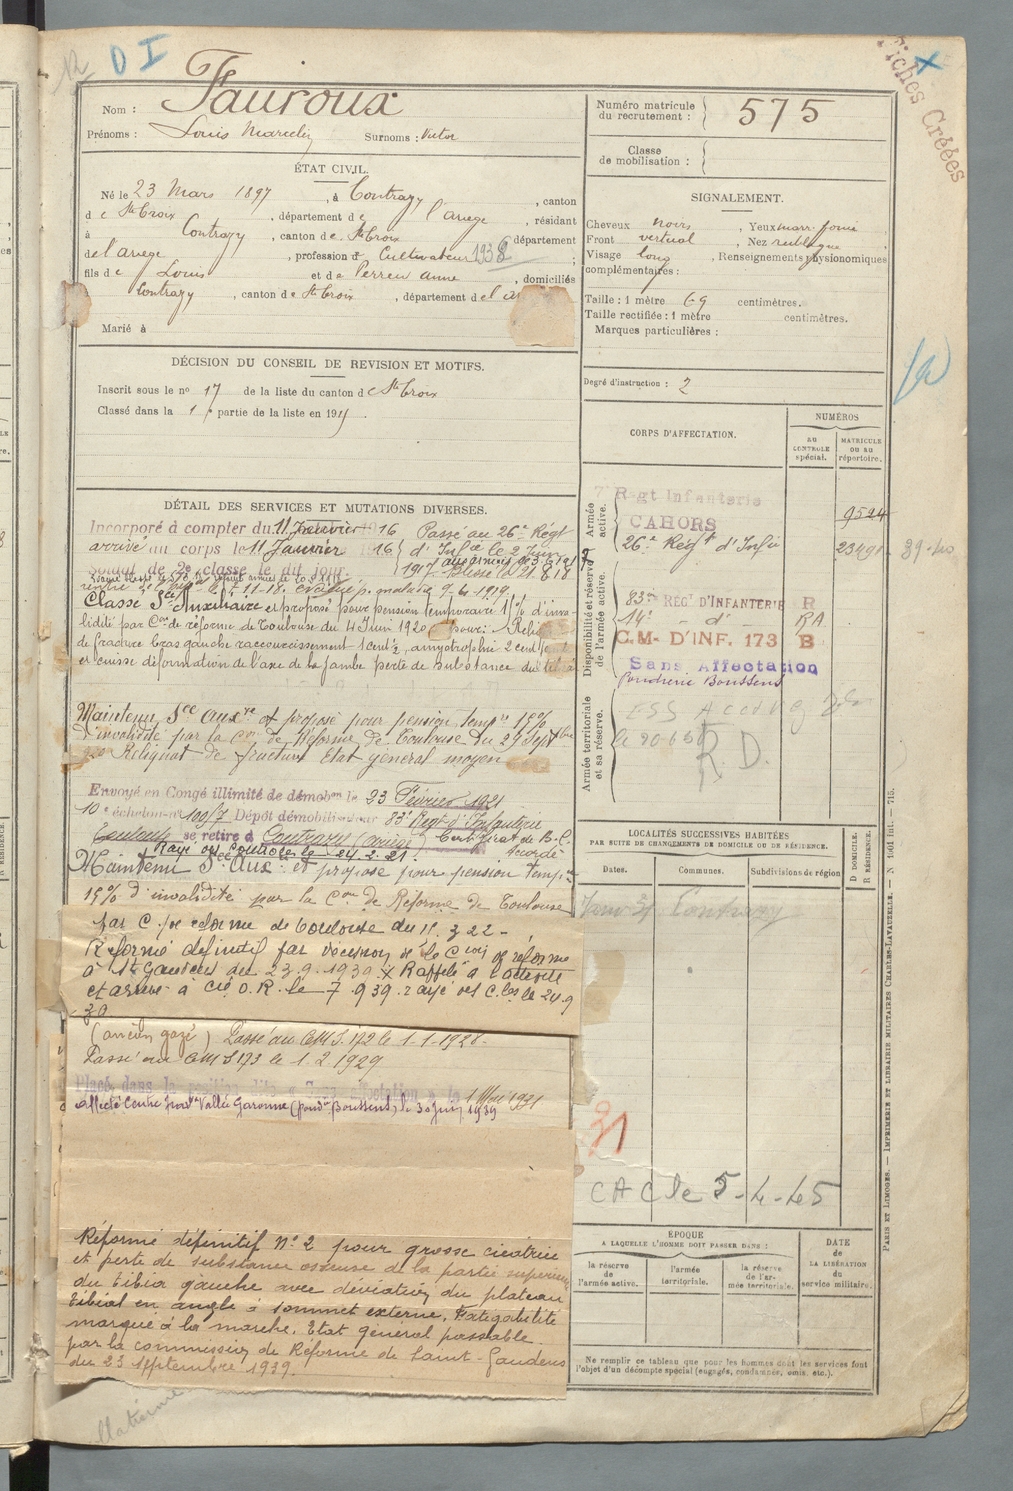 D I
Fiches Créées
Nom : Fauroux
Prénoms : Louis Marcelin Surnoms : Victor
Numéro matricule du recrutement : 575
Classe de mobilisation :
ÉTAT CIVIL.
Né le 23 Mars 1897, à Contrazy, canton
de Ste Croix, département de l'ariege, résidant
à Contrazy, canton de Ste Croix département
de l'ariege, profession d Cultivateur 1938 ;
fils de Louis et de Perreu anne, domiciliés
Contrazy, canton de Ste Croix, département de l'a
Marié à
SIGNALEMENT.
Cheveux noirs, Yeux marr. foncé
Front vertical, Nez rectiligne
Visage long, Renseignements physionomiques
complémentaires :
Taille : 1 mètre 69 centimètres.
Taille rectifiée : 1 mètre centimètres.
Marques particulières :
DÉCISION DU CONSEIL DE REVISION ET MOTIFS.
Inscrit sous le no 17 de la liste du canton de Ste Croix
Classé dans la 1 partie de la liste en 191
Degré d'instruction : 2
CORPS D'AFFECTATION.
NUMÉROS
AU CONTROLE spécial.
MATRICULE OU AU répertoire.
Armée active.
7e Régt Infanterie
CAHORS 9524
26e Régt d'Infie 23491 39-40
Disponibilité et réserve de l'armée active.
83e RÉGt D'INFANTERIE R
14e - d° - RA
C.M- D'INF. 173 B
Sans Affectation
Poudrerie Boussens
Armée territoriale et sa réserve.
R.D.
DÉTAIL DES SERVICES ET MUTATIONS DIVERSES.
Incorporé à compter du 11 Janvier 1916 Passé au 26e Régt
arrivé au corps le 11 Janvier 1916 d'Infie le 2 Juin
Soldat de 2e classe le dit jour. 1917 Blessé le 21.8.18
Classé Sce Auxiliaire et proposé pour pension temporaire 1 % d'inva-
lidité par Con de réforme de Toulouse du 4 Juin 1920 pour: Reli
de fracture bras gauche raccourcissement 1 cent ½, amyotrophie 2 cent
et cuisse déformation de l'axe de la jambe perte de substance du tibia
Maintenu Sce Auxre et proposé pour pension tempre 15%
d'invalidité par la Con de Réforme de Toulouse du 29 Septbre
Reliquat de fracture Etat général moyen
Envoyé en Congé illimité de démobon le 23 Février 1921
10e échelon no 100/7 Dépôt démobilisateur 83e Régt d'Infanterie
Toulouse se retire à Contrazy (ariège) Certificat de B.C.
Rayé des Controles le 24.2.21. accordé
Maintenu Sce Auxre et proposé pour pension tempre
15% d'invalidité par la Con de Réforme de Toulouse
par C. de réforme de Toulouse du 11. 3 22 -
Réformé définitif par décision de la Cion de réforme
à St Gaudens du 23.9.1939 x Rappelé à l'activité
et arrivé à Cie O.R. le 7.9 39. rayé des C. les le 24.9
39
(ancien gazé) Passé au CMI 172 le 1-1-1928-
Passé au CMI 173 le 1. 2. 1929
Placé dans la position dite « Sans affectation » le 1 Mai 1931
affecté Centre Vallée Garonne (poudie Boussens) le 30 Juin 1939
Réformé définitif No 2 pour grosse cicatrice
et perte de substance osseuse de la partie supérieure
du tibia gauche avec déviation du plateau
tibial en angle à sommet externe. Fatigabilité
marquée à la marche. Etat général passable.
par la commission de Réforme de Saint-Gaudens
du 23 Septembre 1939.
LOCALITÉS SUCCESSIVES HABITÉES
PAR SUITE DE CHANGEMENTS DE DOMICILE OU DE RÉSIDENCE.
Dates. Communes. Subdivisions de région
D DOMICILE.
R RÉSIDENCE.
Contrazy
31
CAC le 5-4-45
ÉPOQUE
A LAQUELLE L'HOMME DOIT PASSER DANS :
la réserve de l'armée active.
l'armée territoriale.
la réserve de l'armée territoriale.
DATE de LA LIBÉRATION du service militaire.
Ne remplir ce tableau que pour les hommes dont les services font
l'objet d'un décompte spécial (engagés, condamnés, omis, etc.).
PARIS ET LIMOGES. — IMPRIMERIE ET LIBRAIRIE MILITAIRES CHARLES-LAVAUZELLE. — N 1601 Int. — 715.